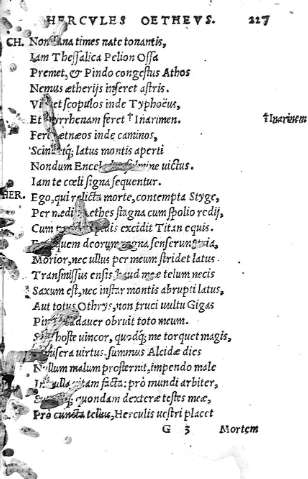 HERCVLES OETHEVS. 227
CH. Non times nate tonantis,
Iam Thessalica Pelion Ossa
Premet, & Pindo congestus Athos
Nemus ætherijs inseret astris.
scopulos inde Typhoëus,
Et feret †Inarimen. †Inarisem
inde caminos,
latus montis aperti
Nondum uictus.
Iam te cœli signa sequentur.
HER. Ego, qui morte, contempta Styge,
Per stagna cum spolio redij,
Cum excidit Titan equis.
quem deorum senserunt
Morior, nec ullus per meum stridet latus
Transmissus ensis, haud meæ telum necis
Saxum est, nec instar montis abrupti latus,
Aut totus Othrys, non truci uultu Gigas
cadauer obruit toto meum.
hoste uincor, quodq; me torquet magis,
uirtus. summus Alcidæ dies
Nullum malum prosternit, impendo male
facta: prò mundi arbiter,
quondam dexteræ testes meæ,
Prò cuncta tellus, Herculis uestri placet
G 3 Mortem